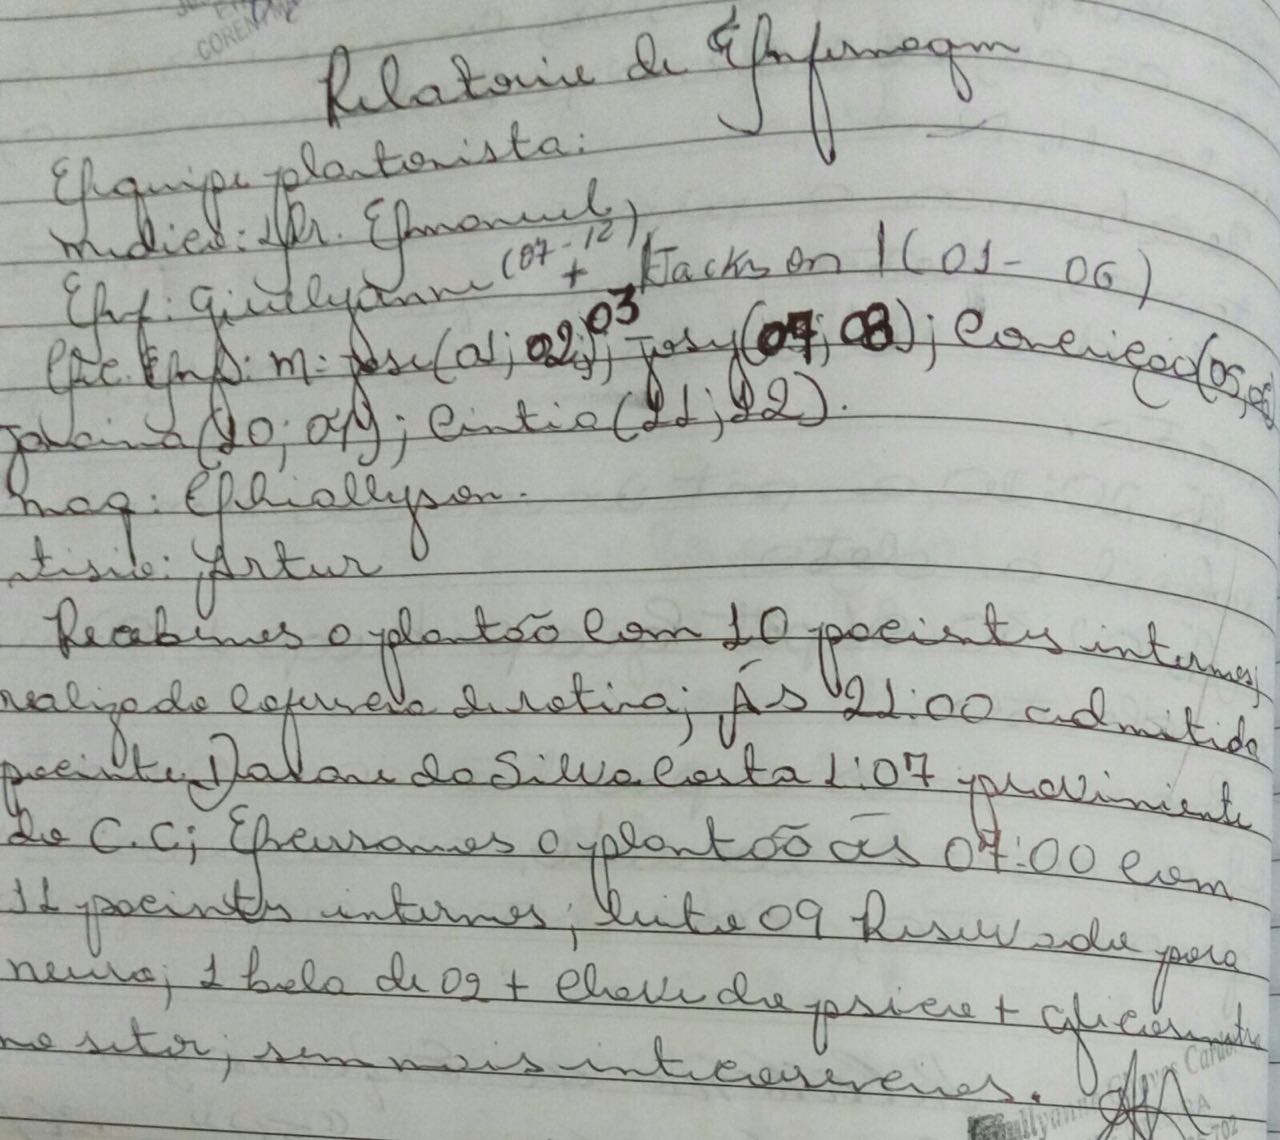 COREN
Relatorio de Enfermagm
Equipe plantonista:
medico: Dr. Emanuel
Enf: Giullyanne (07-12) + Jackson (01-06)
Tec. Enf: M: Jose (01; 02; 03); Josy (07; 08); Conceição (05,06)
Janaina (10; 09); Cintia (11; 12).
maq: Ehiallyson.
Artur
Recebemos o plantão com 10 pacientes internos;
realizado de rotina; Às 21:00 admitida
paciente da Silva Costa L:07 proveniente
do C.C; Encerramos o plantão às 07:00 com
11 pacientes internos; leito 09 Reservado para
neuro; 1 bala de O2 + chave do psico + glicosimetro
no setor; sem mais intercorrencias.